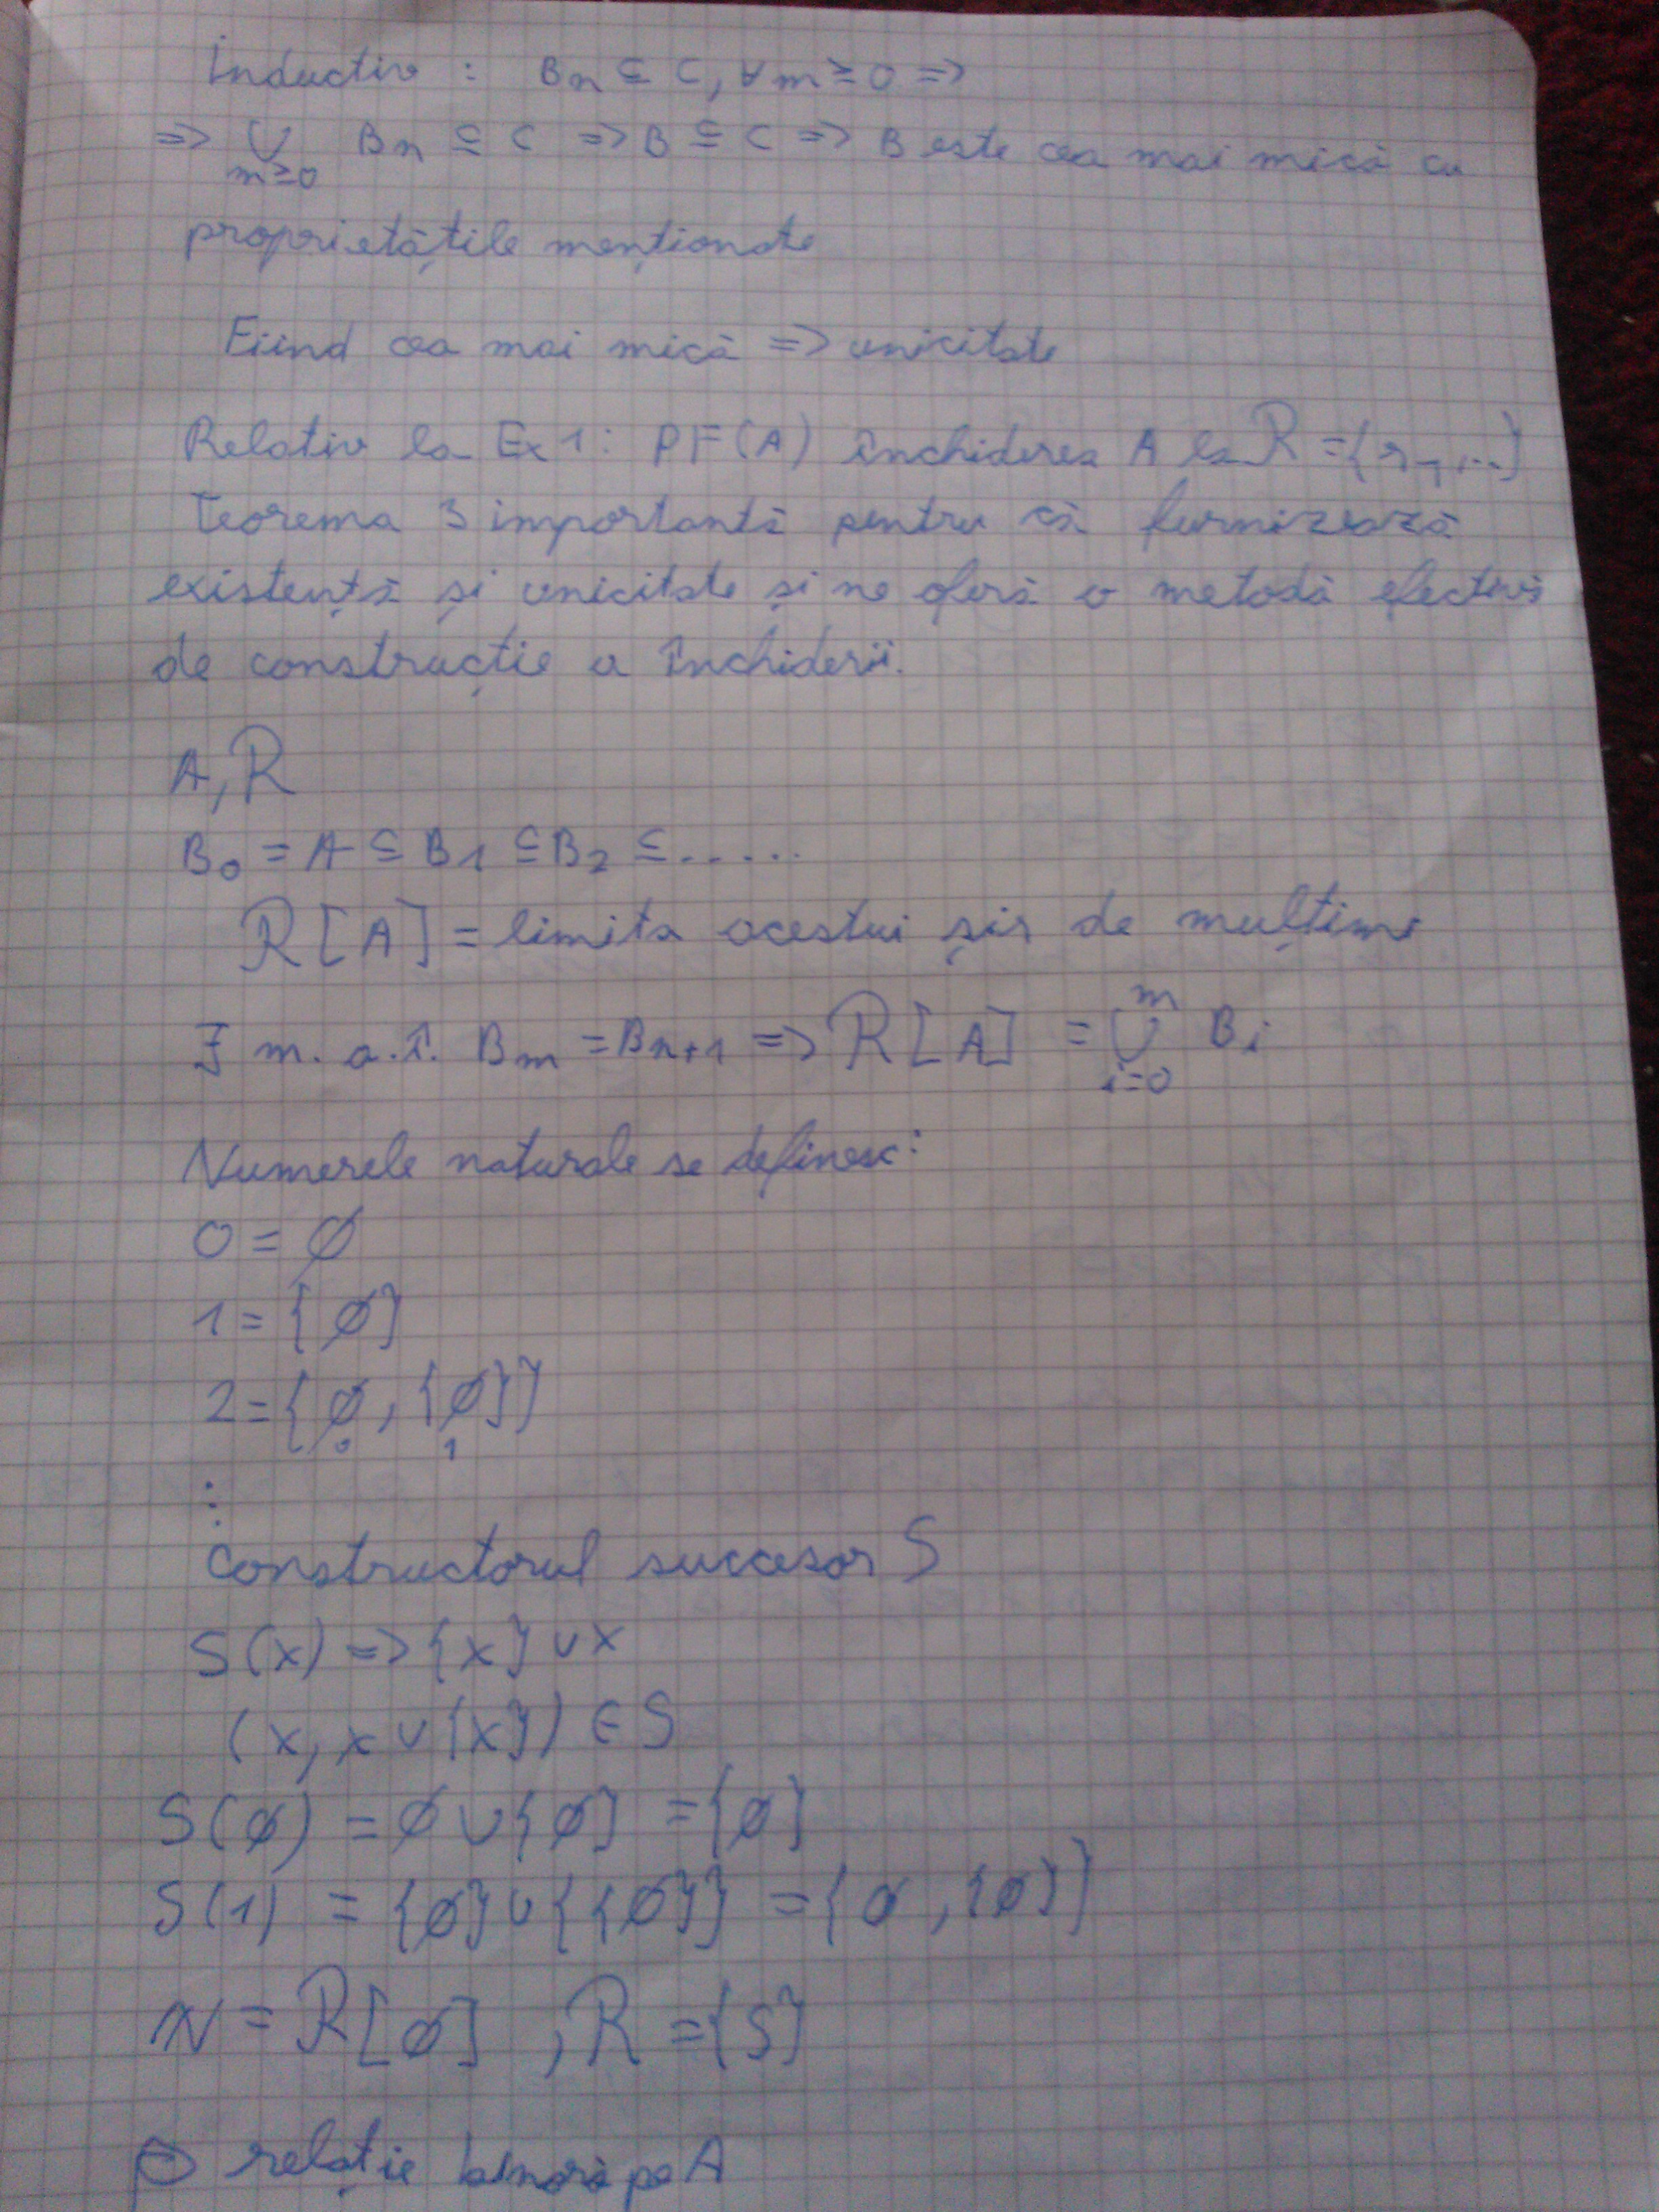 Inductiv : Bn ⊆ C, ∀ n ≥ 0 =>
=> ∪ Bn ⊆ C => B ⊆ C => B este cea mai mică cu
n≥0
proprietățile menționate
Fiind cea mai mică => unicitate
Relativ la Ex 1: PF(A) închiderea A la R = {r1, ...}
Teorema 3 importantă pentru că furnizează
existență și unicitate și ne oferă o metodă efectivă
de construcție a închiderii.
A, R
B0 = A ⊆ B1 ⊆ B2 ⊆ ......
R[A] = limita acestui șir de mulțimi
m
∃ m. a.î. Bm = Bm+1 => R[A] = ∪ Bi
i=0
Numerele naturale se definesc:
0 = ∅
1 = {∅}
2 = {∅, {∅}}
0 1
:
Constructorul succesor S
S(x) => {x} ∪ x
(x, x ∪ {x}) ∈ S
S(∅) = ∅ ∪ {∅} = {∅}
S(1) = {∅} ∪ {{∅}} = {∅, {∅}}
N = R[∅] , R = {S}
relație binară pe A